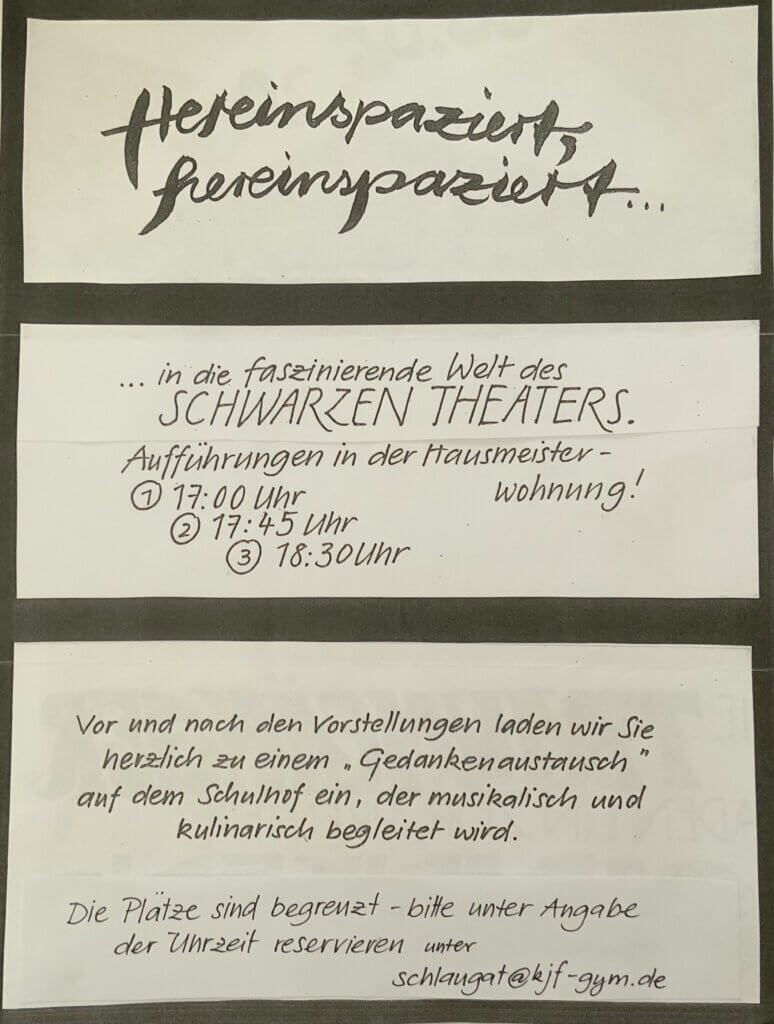 Hereinspaziert,
hereinspaziert...
... in die faszinierende Welt des
SCHWARZEN THEATERS.
Aufführungen in der Hausmeister-
wohnung!
① 17:00 Uhr
② 17:45 Uhr
③ 18:30 Uhr
Vor und nach den Vorstellungen laden wir Sie
herzlich zu einem „Gedankenaustausch"
auf dem Schulhof ein, der musikalisch und
kulinarisch begleitet wird.
Die Plätze sind begrenzt - bitte unter Angabe
der Uhrzeit reservieren unter
schlaugat@kjf-gym.de